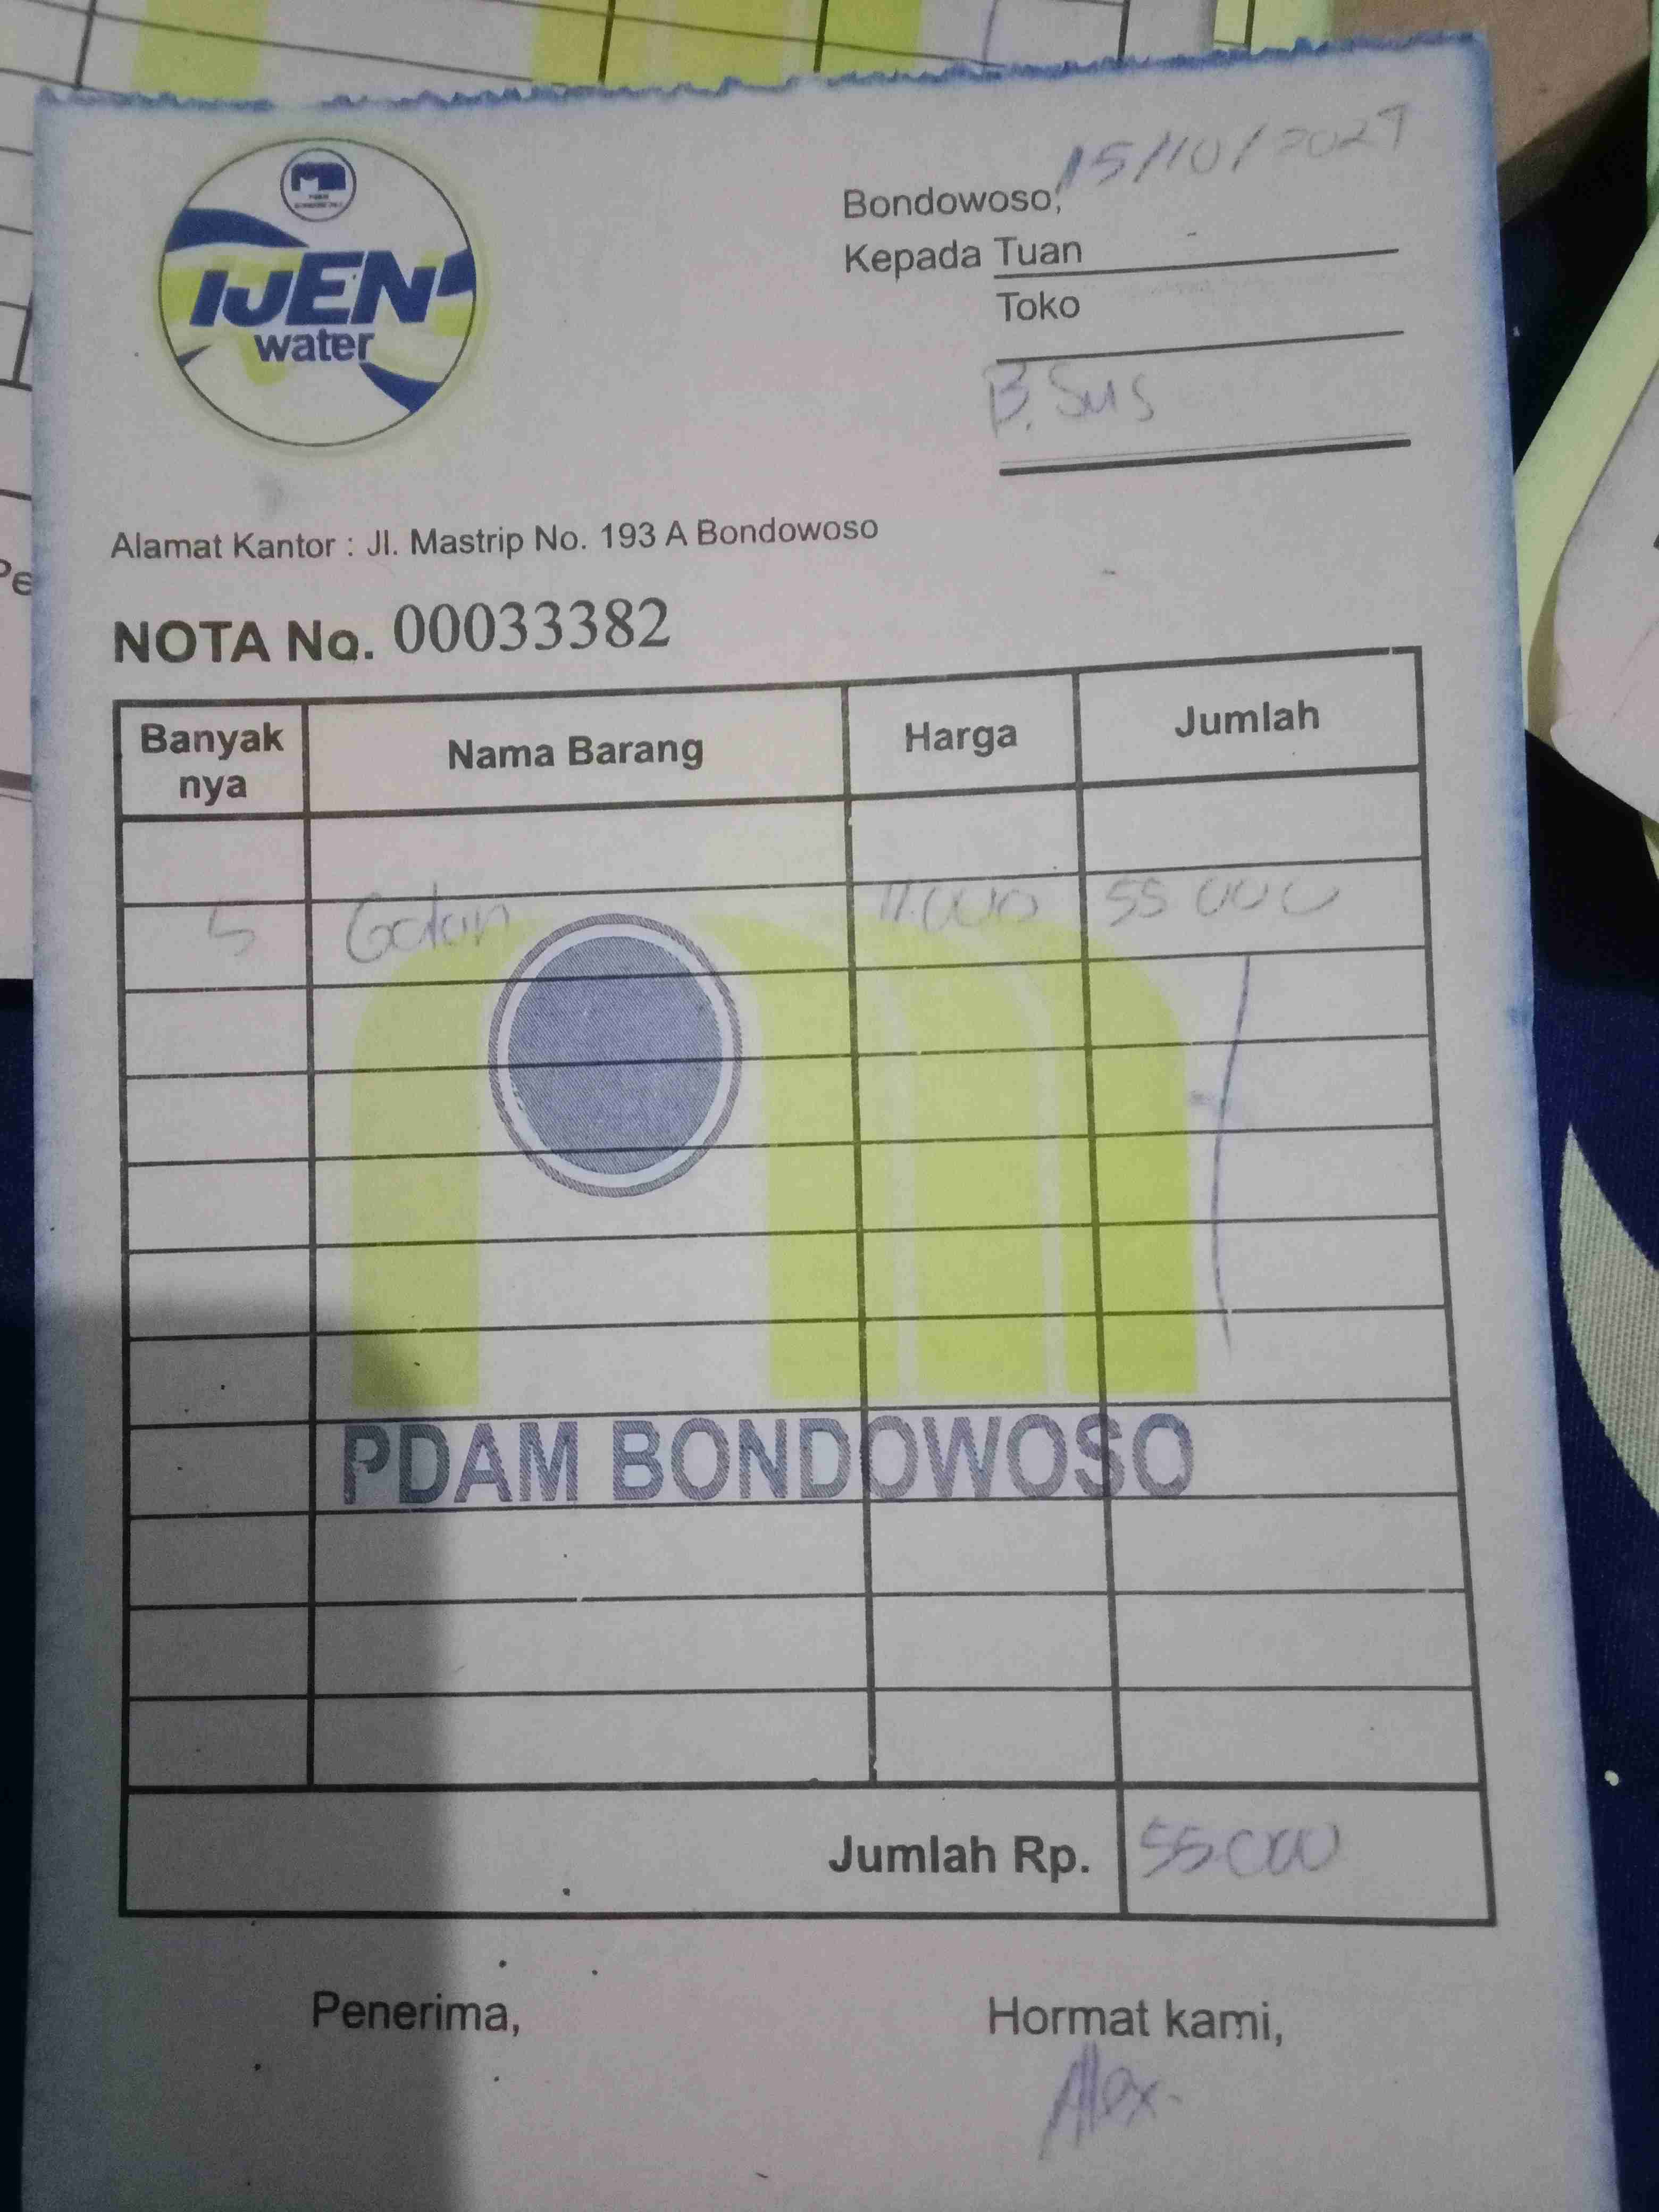 IJEN
water
Bondowoso, 15/10/2029
Kepada Tuan
Toko
B. Sus
Alamat Kantor : Jl. Mastrip No. 193 A Bondowoso
NOTA No. 00033382
Banyak nya Nama Barang Harga Jumlah
5 Galon 11.000 55 000
PDAM BONDOWOSO
Jumlah Rp. 55.000
Penerima, Hormat kami,
Alex